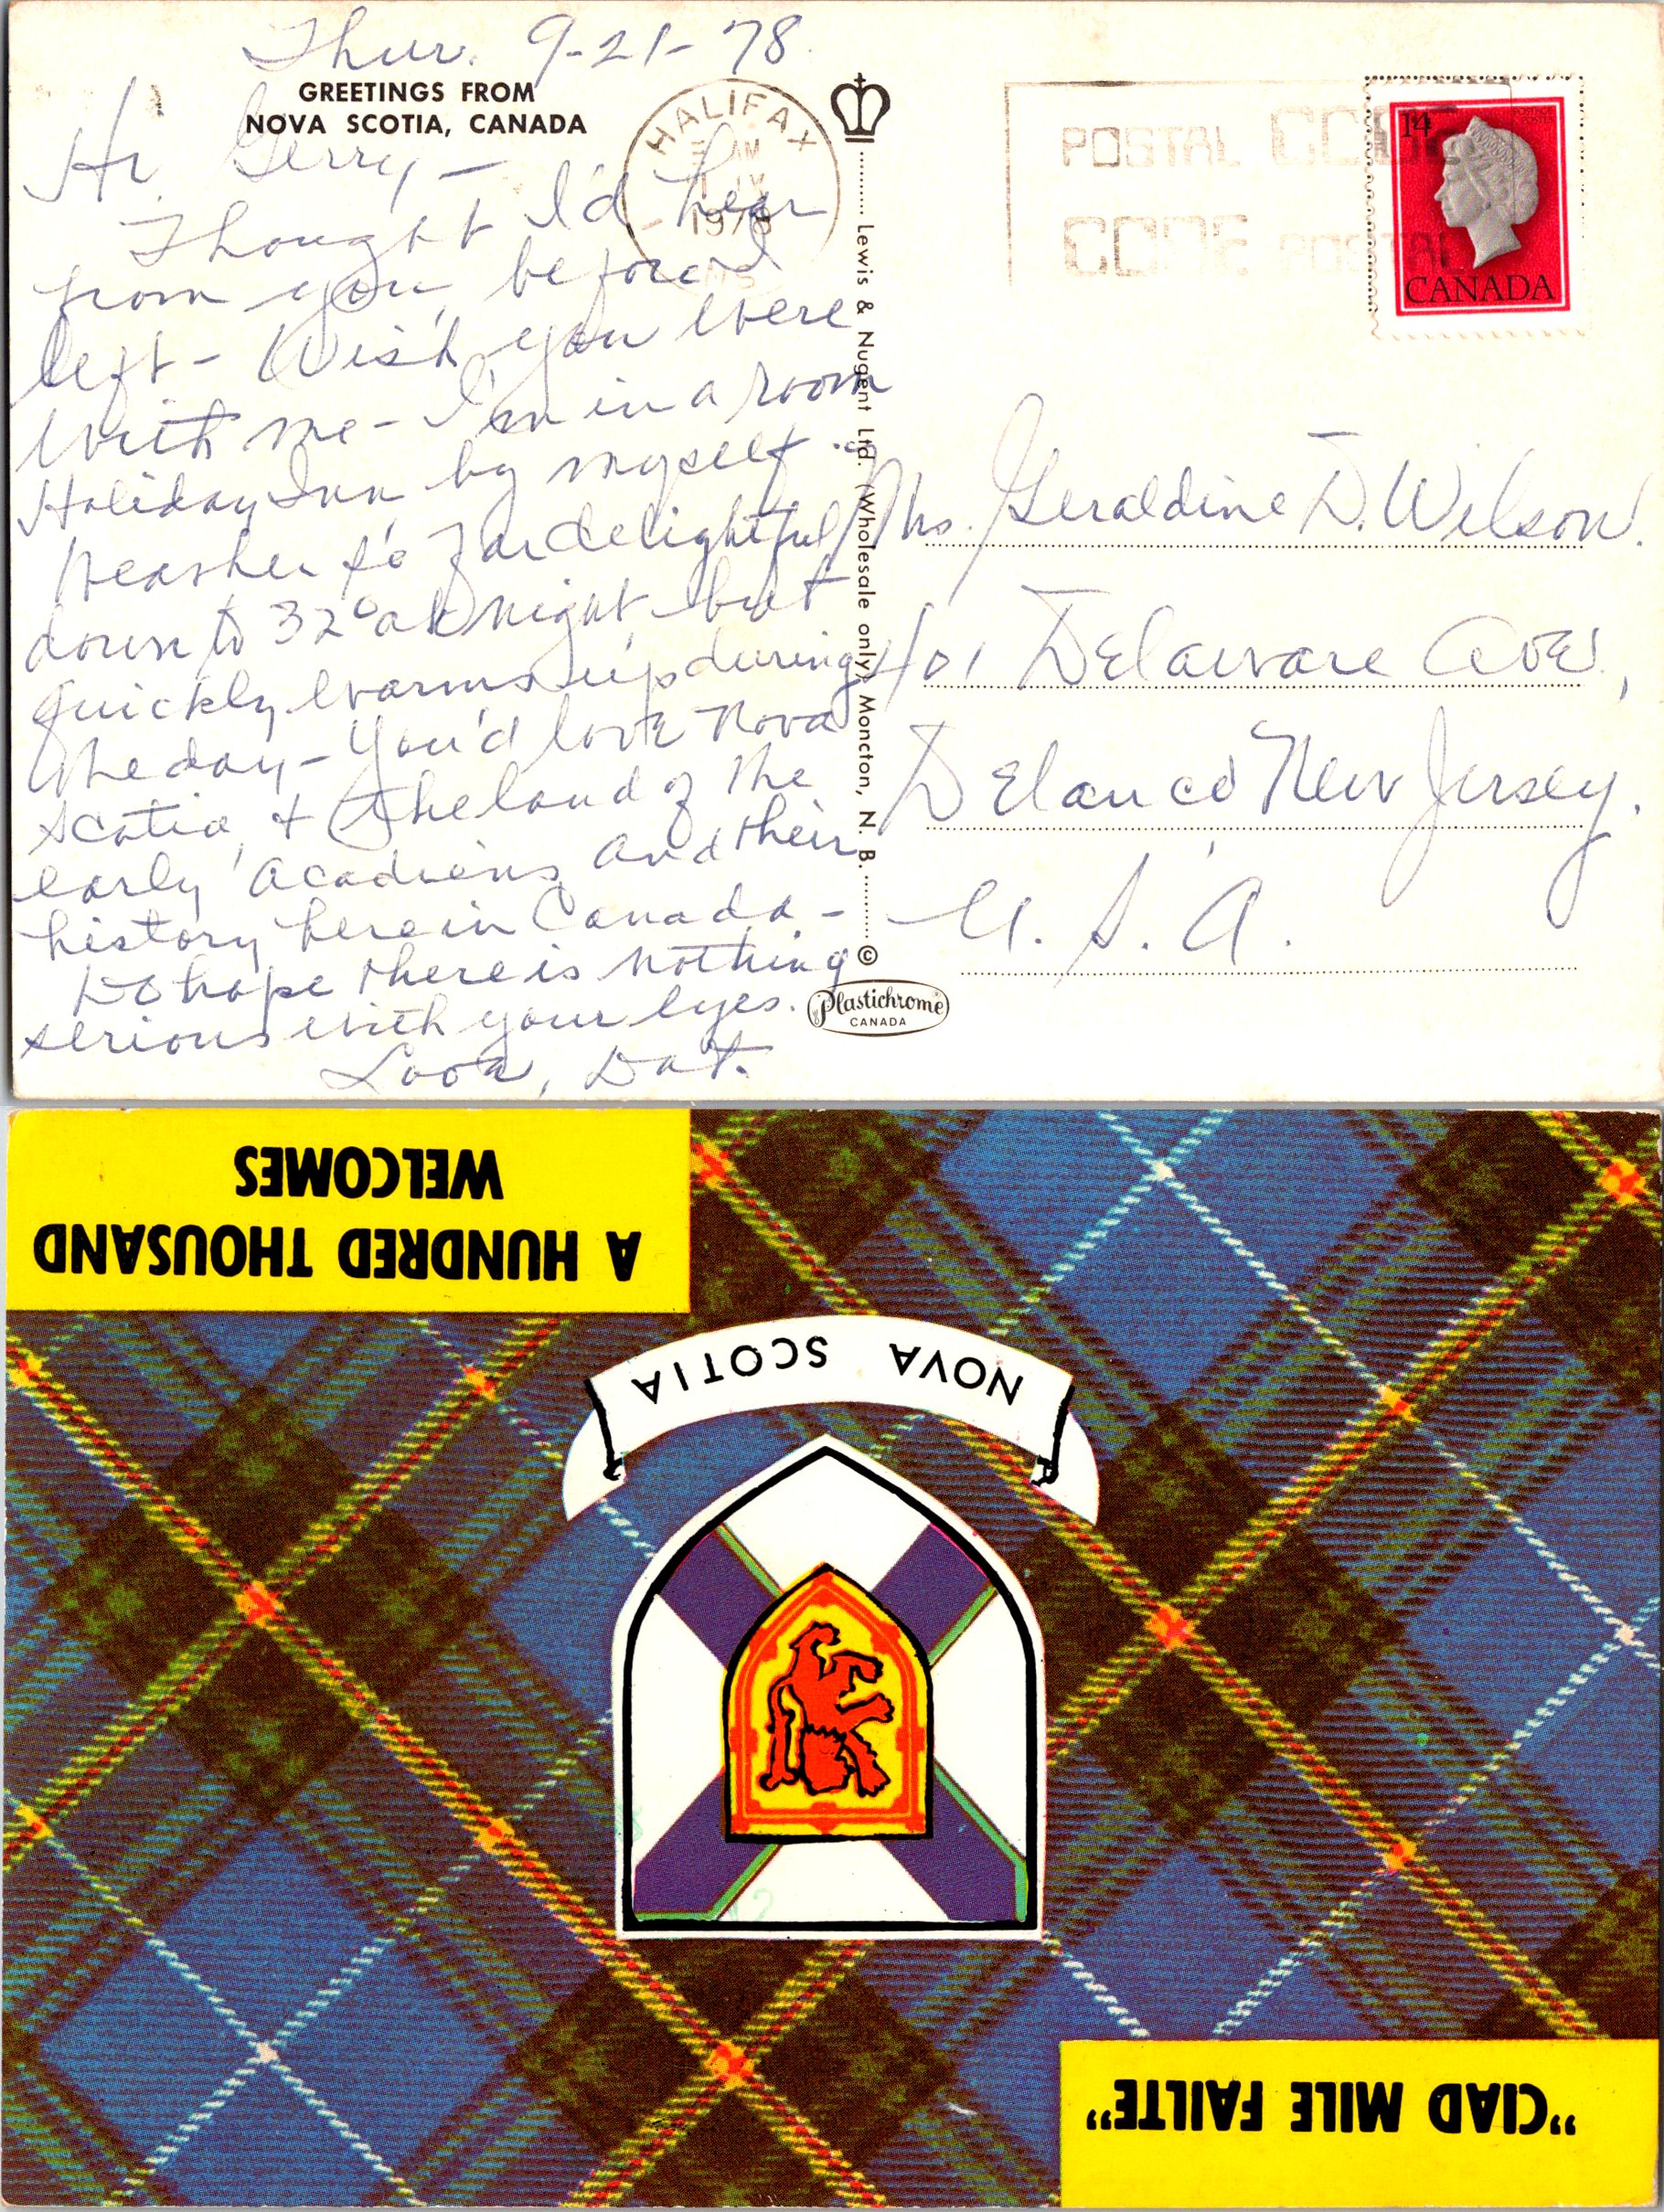 Thur. 9-21-78
GREETINGS FROM
NOVA SCOTIA, CANADA
Hi Gerry -
Thought I'd hear
from you before I
left - Wish you were
with me - I'm in a room
Holiday Inn by myself.
Weather so far delightful
down to 32° at night but
quickly warms up during
the day - You'd love Nova
Scotia, + the land of the
early Acadiens and their
history here in Canada -
Do hope there is nothing
serious with your eyes.
Love, Dot.
HALIFAX
AM
IX
1978
N.S.
Lewis & Nugent Ltd. (Wholesale only) Moncton, N. B.
©
Plastichrome
CANADA
POSTAL CODE
CODE POSTAL
14
POSTAGE
POSTES
CANADA
Mrs. Geraldine D. Wilson.
401 Delaware Ave,
Delanco New Jersey.
U. S. A.
A HUNDRED THOUSAND
WELCOMES
NOVA SCOTIA
"CIAD MILE FAILTE"